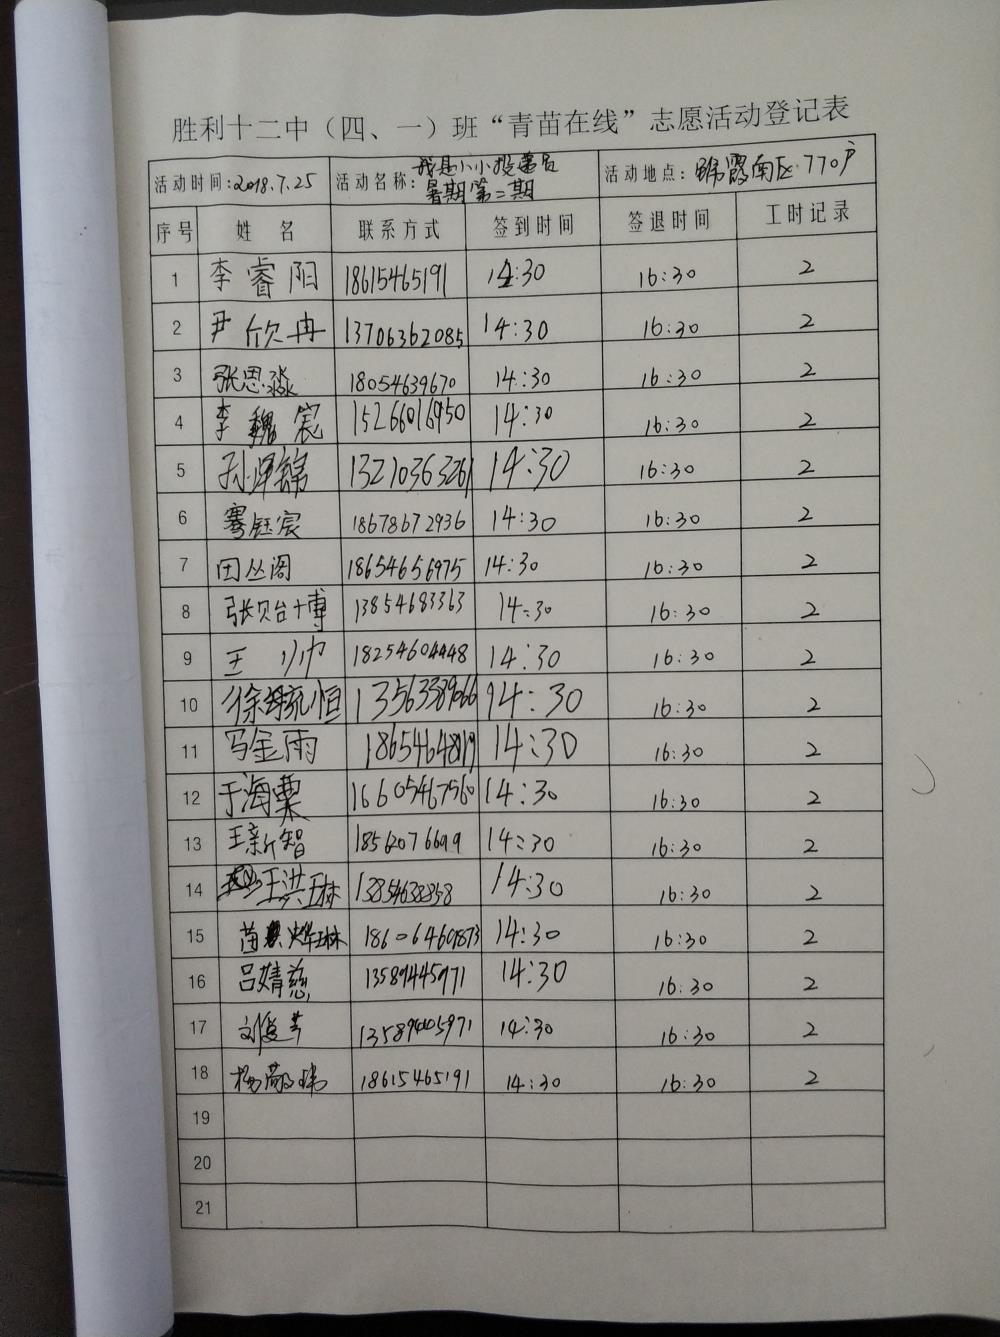 胜利十二中（四、一）班“青苗在线”志愿活动登记表
活动时间：2018.7.25 活动名称：我是小小投递员 暑期第二期 活动地点：锦霞南区 770户
序号 姓名 联系方式 签到时间 签退时间 工时记录
1 李睿阳 18615465191 14:30 16:30 2
2 尹欣冉 13706362085 14:30 16:30 2
3 张思淼 18054639670 14:30 16:30 2
4 李魏宸 15266016950 14:30 16:30 2
5 孙 锦 13210363261 14:30 16:30 2
6 骞钰宸 18678672936 14:30 16:30 2
7 田丛阁 18654656975 14:30 16:30 2
8 张贻博 13854683363 14:30 16:30 2
9 王帅 18254604448 14:30 16:30 2
10 徐 恒 14:30 16:30 2
11 金雨 14:30 16:30 2
12 于海粟 16605467560 14:30 16:30 2
13 王新智 18562076699 14:30 16:30 2
14 王洪琳 14:30 16:30 2
15 苗 烨琳 18606460873 14:30 16:30 2
16 吕婧慈 13589445971 14:30 16:30 2
17 刘 14:30 16:30 2
18 杨 18615465191 14:30 16:30 2
19
20
21